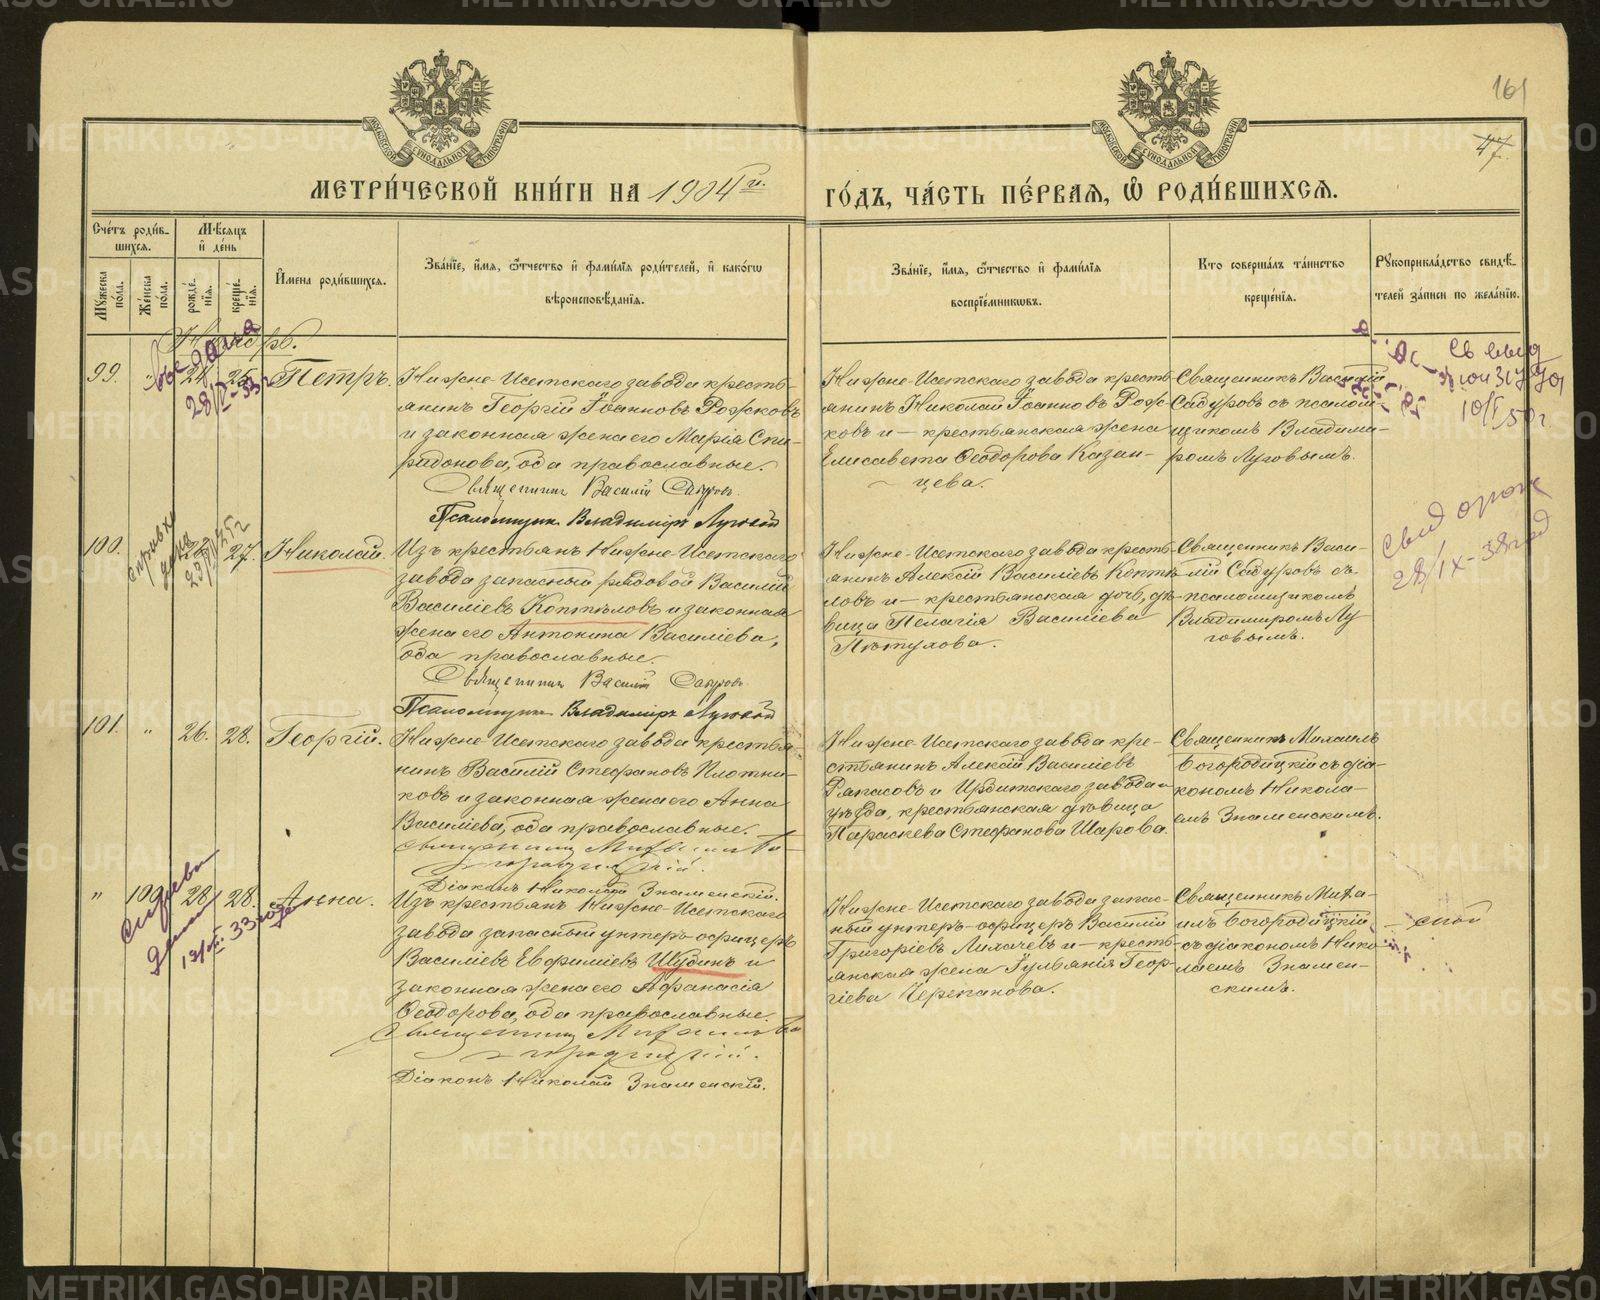 161
47.
МЕТРИЧЕСКОЙ КНИГИ НА 1904 г.
ГОДЪ, ЧАСТЬ ПЕРВАЯ, Ѽ РОДИВШИХСѦ.
Счетъ родив-
шихсѧ.
Мѣсѧцъ
и день
Мужеска
пола.
Женска
пола.
рожде-
нїѧ.
креще-
нїѧ.
Имена родившихсѧ.
Званїе, имѧ, ѿчество и фамилїѧ родителей, и какогѡ
вѣроисповѣданїѧ.
Званїе, имѧ, ѿчество и фамилїѧ
воспрїемникѡвъ.
Кто совершалъ таинство
крещенїѧ.
Рукоприкладство свидѣ-
телей записи по желанїю.
99.
25.
Петръ.
Нижне-Исетскаго завода кресть-
янинъ Георгій Іоанновъ Рожковъ
и законная жена его Марія Спи-
ридонова, оба православные.
Священникъ Василій
Псаломщикъ Владиміръ Луговой
Нижне-Исетскаго завода кресть-
янинъ Николай Іоанновъ Рож-
ковъ и крестьянская жена
Елисавета Ѳеодорова Казан-
цева.
Священникъ Василій
съ псалом-
щикомъ Владими-
ромъ Луговымъ.
28/IX-33 г
10/I 50 г
100.
27.
Николай.
Изъ крестьянъ Нижне-Исетскаго
завода запасный рядовой Василій
Василіевъ Коптѣловъ и законная
жена его Антонина Василіева,
оба православные.
Священникъ Василій
Псаломщикъ Владиміръ Луговой
Нижне-Исетскаго завода кресть-
янинъ Алексій Василіевъ Коптѣ-
ловъ и крестьянская дочь, дѣ-
вица Пелагія Василіева
Пѣтухова.
Священникъ Васи-
лій съ
псаломщикомъ
Владимиромъ Лу-
говымъ.
28/IX-38 год
101.
"
26.
28.
Георгій.
Нижне-Исетскаго завода крестья-
нинъ Василій Стефановъ Плотни-
ковъ и законная жена его Анна
Василіева, оба православные.
Священникъ Михаилъ Бо-
городицкій.
Діаконъ Николай Знаменскій.
Нижне-Исетскаго завода кре-
стьянинъ Алексій Василіевъ
и Ирбитскаго завода и
уѣзда, крестьянская дѣвица
Параскева Стефанова Шарова.
Священникъ Михаилъ
Богородицкій съ діа-
кономъ Никола-
емъ Знаменскимъ.
"
28.
28.
Анна.
Изъ крестьянъ Нижне-Исетскаго
завода запасный унтеръ-офицеръ
Василіевъ Евфиміевъ Шубинъ и
законная жена его Аѳанасія
Ѳеодорова, оба православные.
Священникъ Михаилъ Бо-
городицкій.
Діаконъ Николай Знаменскій.
Нижне-Исетскаго завода запас-
ный унтеръ-офицеръ Василій
Григоріевъ Лихачевъ и кресть-
янская жена Іуліанія Геор-
гіева Черепанова.
Священникъ Миха-
илъ Богородицкій
съ діакономъ Нико-
лаемъ Знамен-
скимъ.